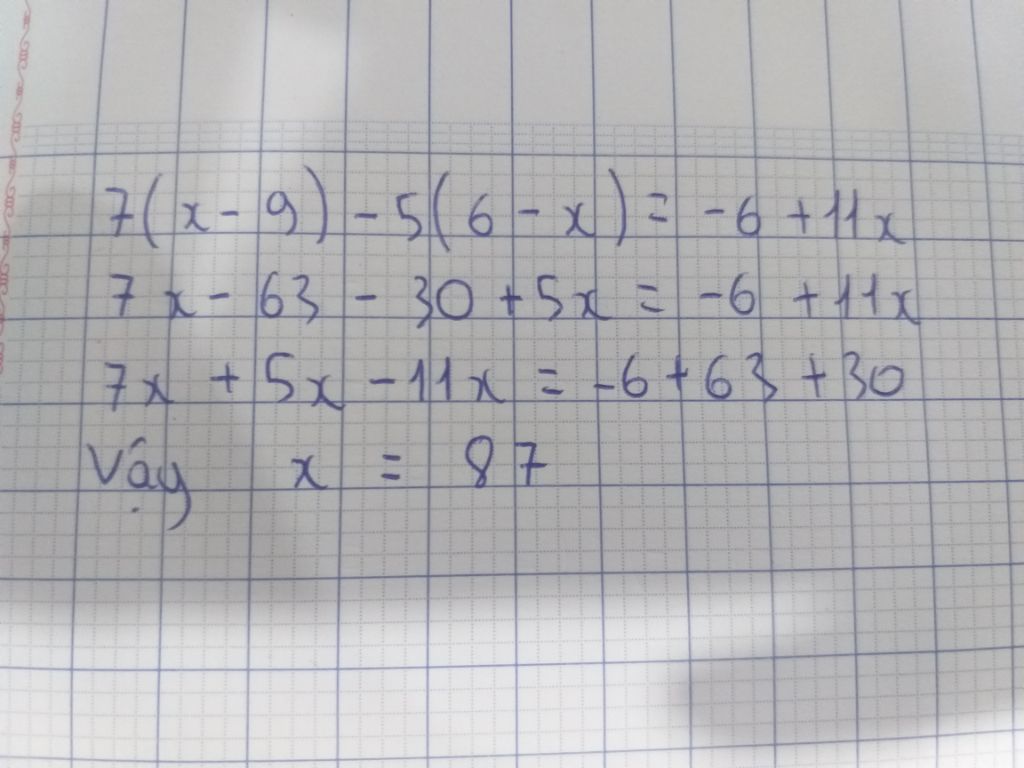 7(x - 9) - 5(6 - x) = -6 + 11x
7x - 63 - 30 + 5x = -6 + 11x
7x + 5x - 11x = -6 + 63 + 30
Vậy x = 87